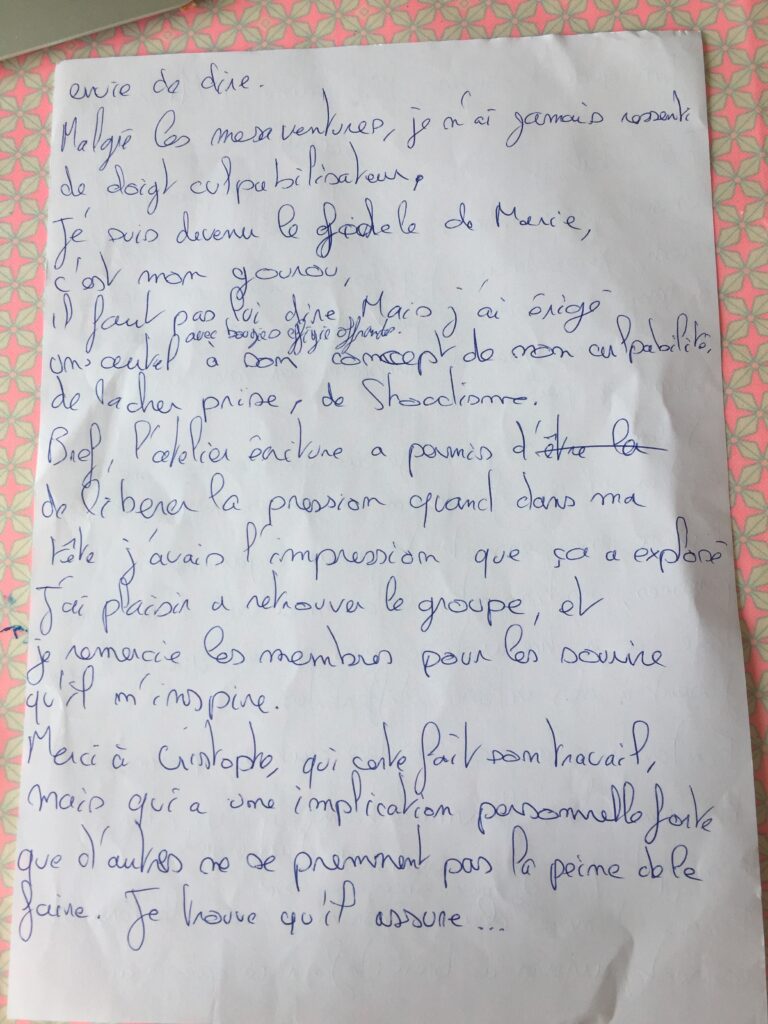 envie de dire.
Malgré les mesaventures, je n'ai jamais ressenti
de doigt culpabilisateur,
Je suis devenu le fidele de Marie,
c'est mon gourou,
il faut pas lui dire Mais j'ai érigé
avec bougies effigie offrande.
un autel à son concept de non culpabilité,
de lacher prise, de
Bref, l'atelier écriture a permis d'être la
de libérer la pression quand dans ma
tête j'avais l'impression que ça a explosé
J'ai plaisir a retrouver le groupe, et
je remercie les membres pour les sourire
qu'il m'inspire.
Merci à Cristophe, qui certe fait son travail,
mais qui a une implication personnelle forte
que d'autres ne se prennent pas la peine de le
faire. Je trouve qu'il assure...